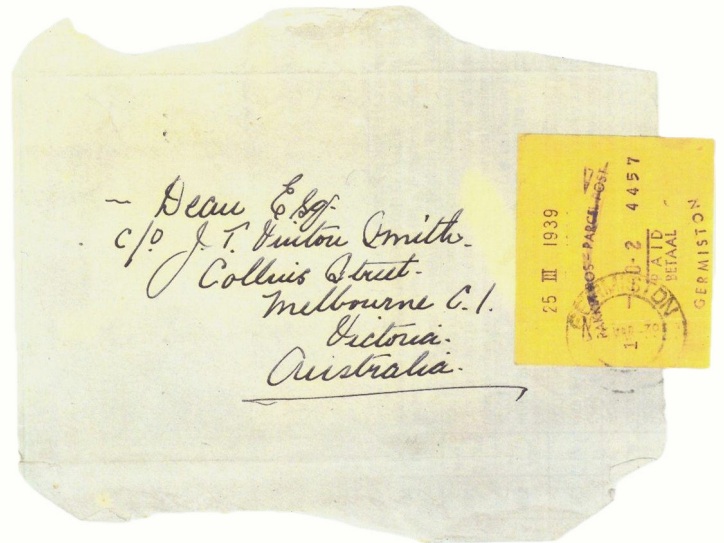 – Dean Esq.
c/o J. T. Vinton Smith.
Collins Street.
Melbourne C.1.
Victoria.
Australia.
25 III 1939
PARCEL POST
4457
PAID
BETAAL
GERMISTON
GERMISTON